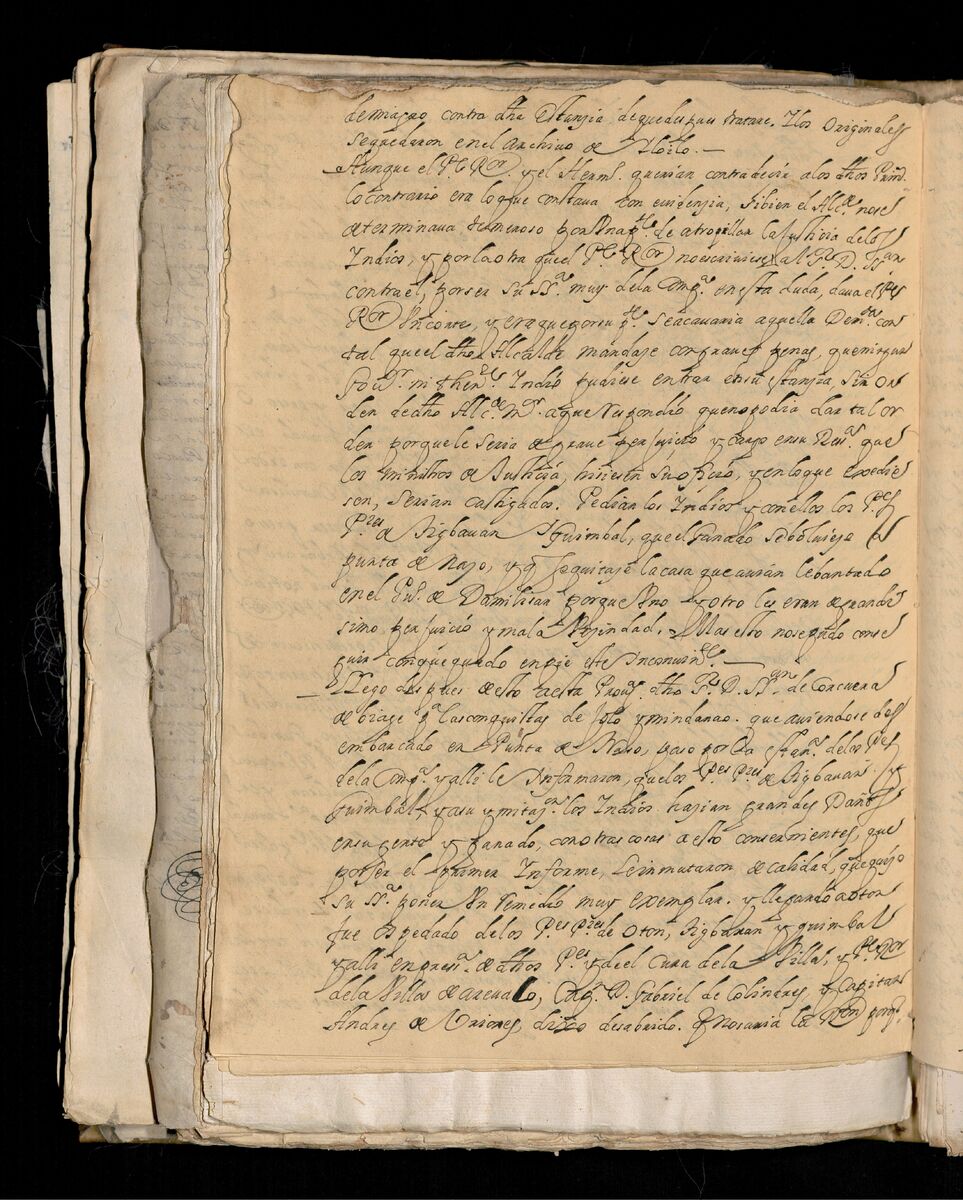 demiago contra dha Estanzia, dequedespues tratare. Ylos Originales
sequedaron enel Archivo de Yloilo. —
Aunque el Pe Ror. y el Herm. querian contradezir alos dhos
lo contrario era loque constava con euidenzia, sibien el Alcde. nose
determinaua temeroso por Unapte. de atropellar la Justicia delos
Indios, y porlaotra queel Pe Ror noescriuiese al Gor D. Ssan
contrael, porser Su Sa. muy dela Compa. en esta duda, daua el Pe
Ror Un corte, y eraqueporsu pte. Seacauaria aquella Demda. con
tal queel dho Alcalde mandase congraues penas, queningun
Indio pudiese entrar ensu estanzia, Sin or
den dedho Alcde. Mor. aque Respondio quenopodia dar tal or
den porquele seria de graue perjuicio y cargo ensu Resa. que
los ministros de Justicia, hiziesen Suoficio, y enloque Exedie
son, Serian castigados. Pedian los Indios y conellos los Pes
Pres de Tigbauan y Guimbal, queel ganado Seboluiese a
punta de Naso, y q sequitase lacasa queauian lebantado
enel Pu. de Damilisan porque Uno y otro les eran degrandi
simo perjuicio y mala Vezindad. Mas esto nosepudo conse
guir conquequedo enpie este Inconuinte. —
Llego despues de esto aesta Proua. dho Sr. D. Ssan. de Corcuera
de biage pa. lasconquistas de Jolo y mindanao. que auiendose des
embarcado en Punta de Naso, paso porla estana. delos Pes
dela Compa. y alli le Informaron, quelos Pes Pres de Tigbauan y
Guimbal y los Indios hazian grandes Daños
ensugente y ganado, conotrascosas aesto consernientes, que
porser el primer Informe, leinmutaron de calidad, quequiso
Su Sa. poner Un remedio muy exemplar. y llegando aoton
fue ospedado delos Pes Pres de Oton, Tigbauan y guimbal
y alli enpresa. de dhos Pes y deel Cura dela Villa, y Pe Ror
dela Villa de areualo, Cap. D. Gabriel de Colindres y Capitan
Andres de Uriones, dixo desabrido. q Nosauia la Ron porq.